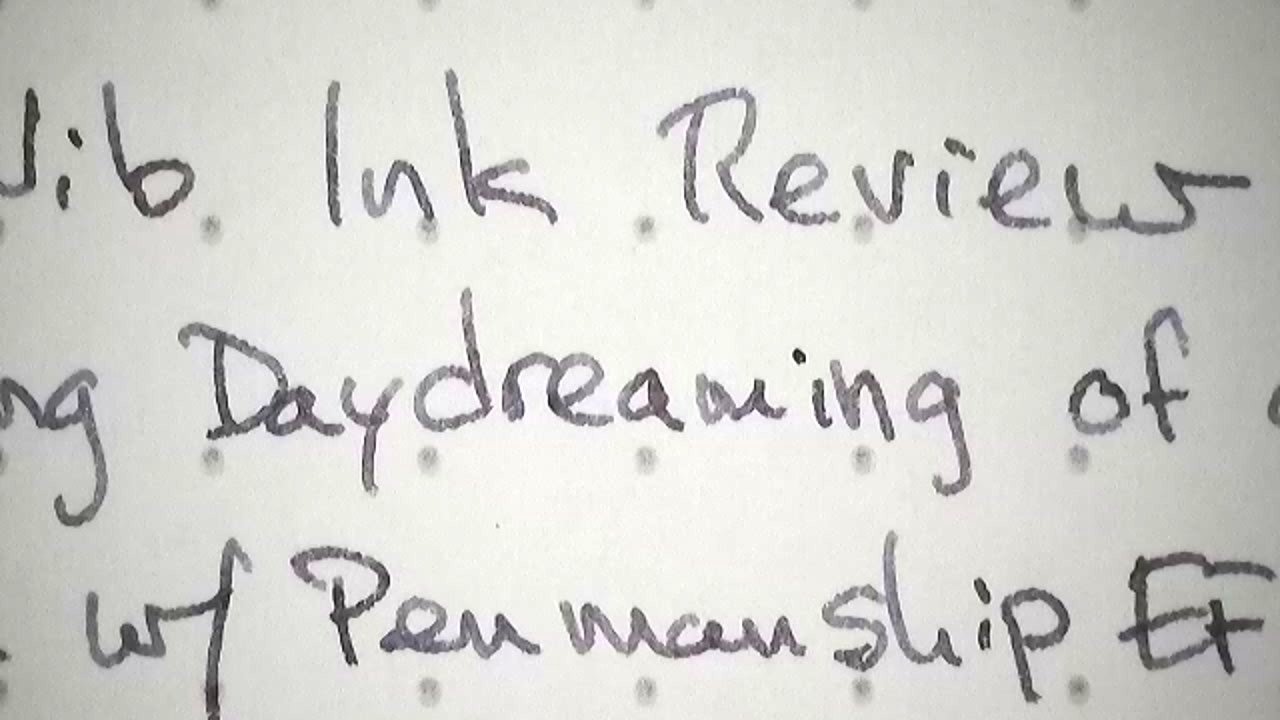 Nib Ink Review
ng Daydreaming of
w/ Penmanship EF